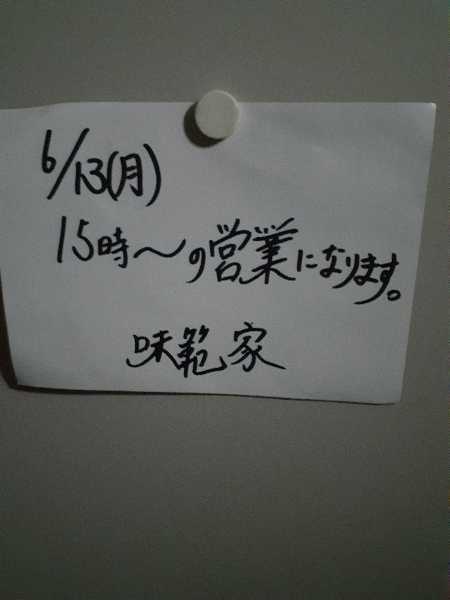 6/13(月)
15時～の営業になります。
味範家